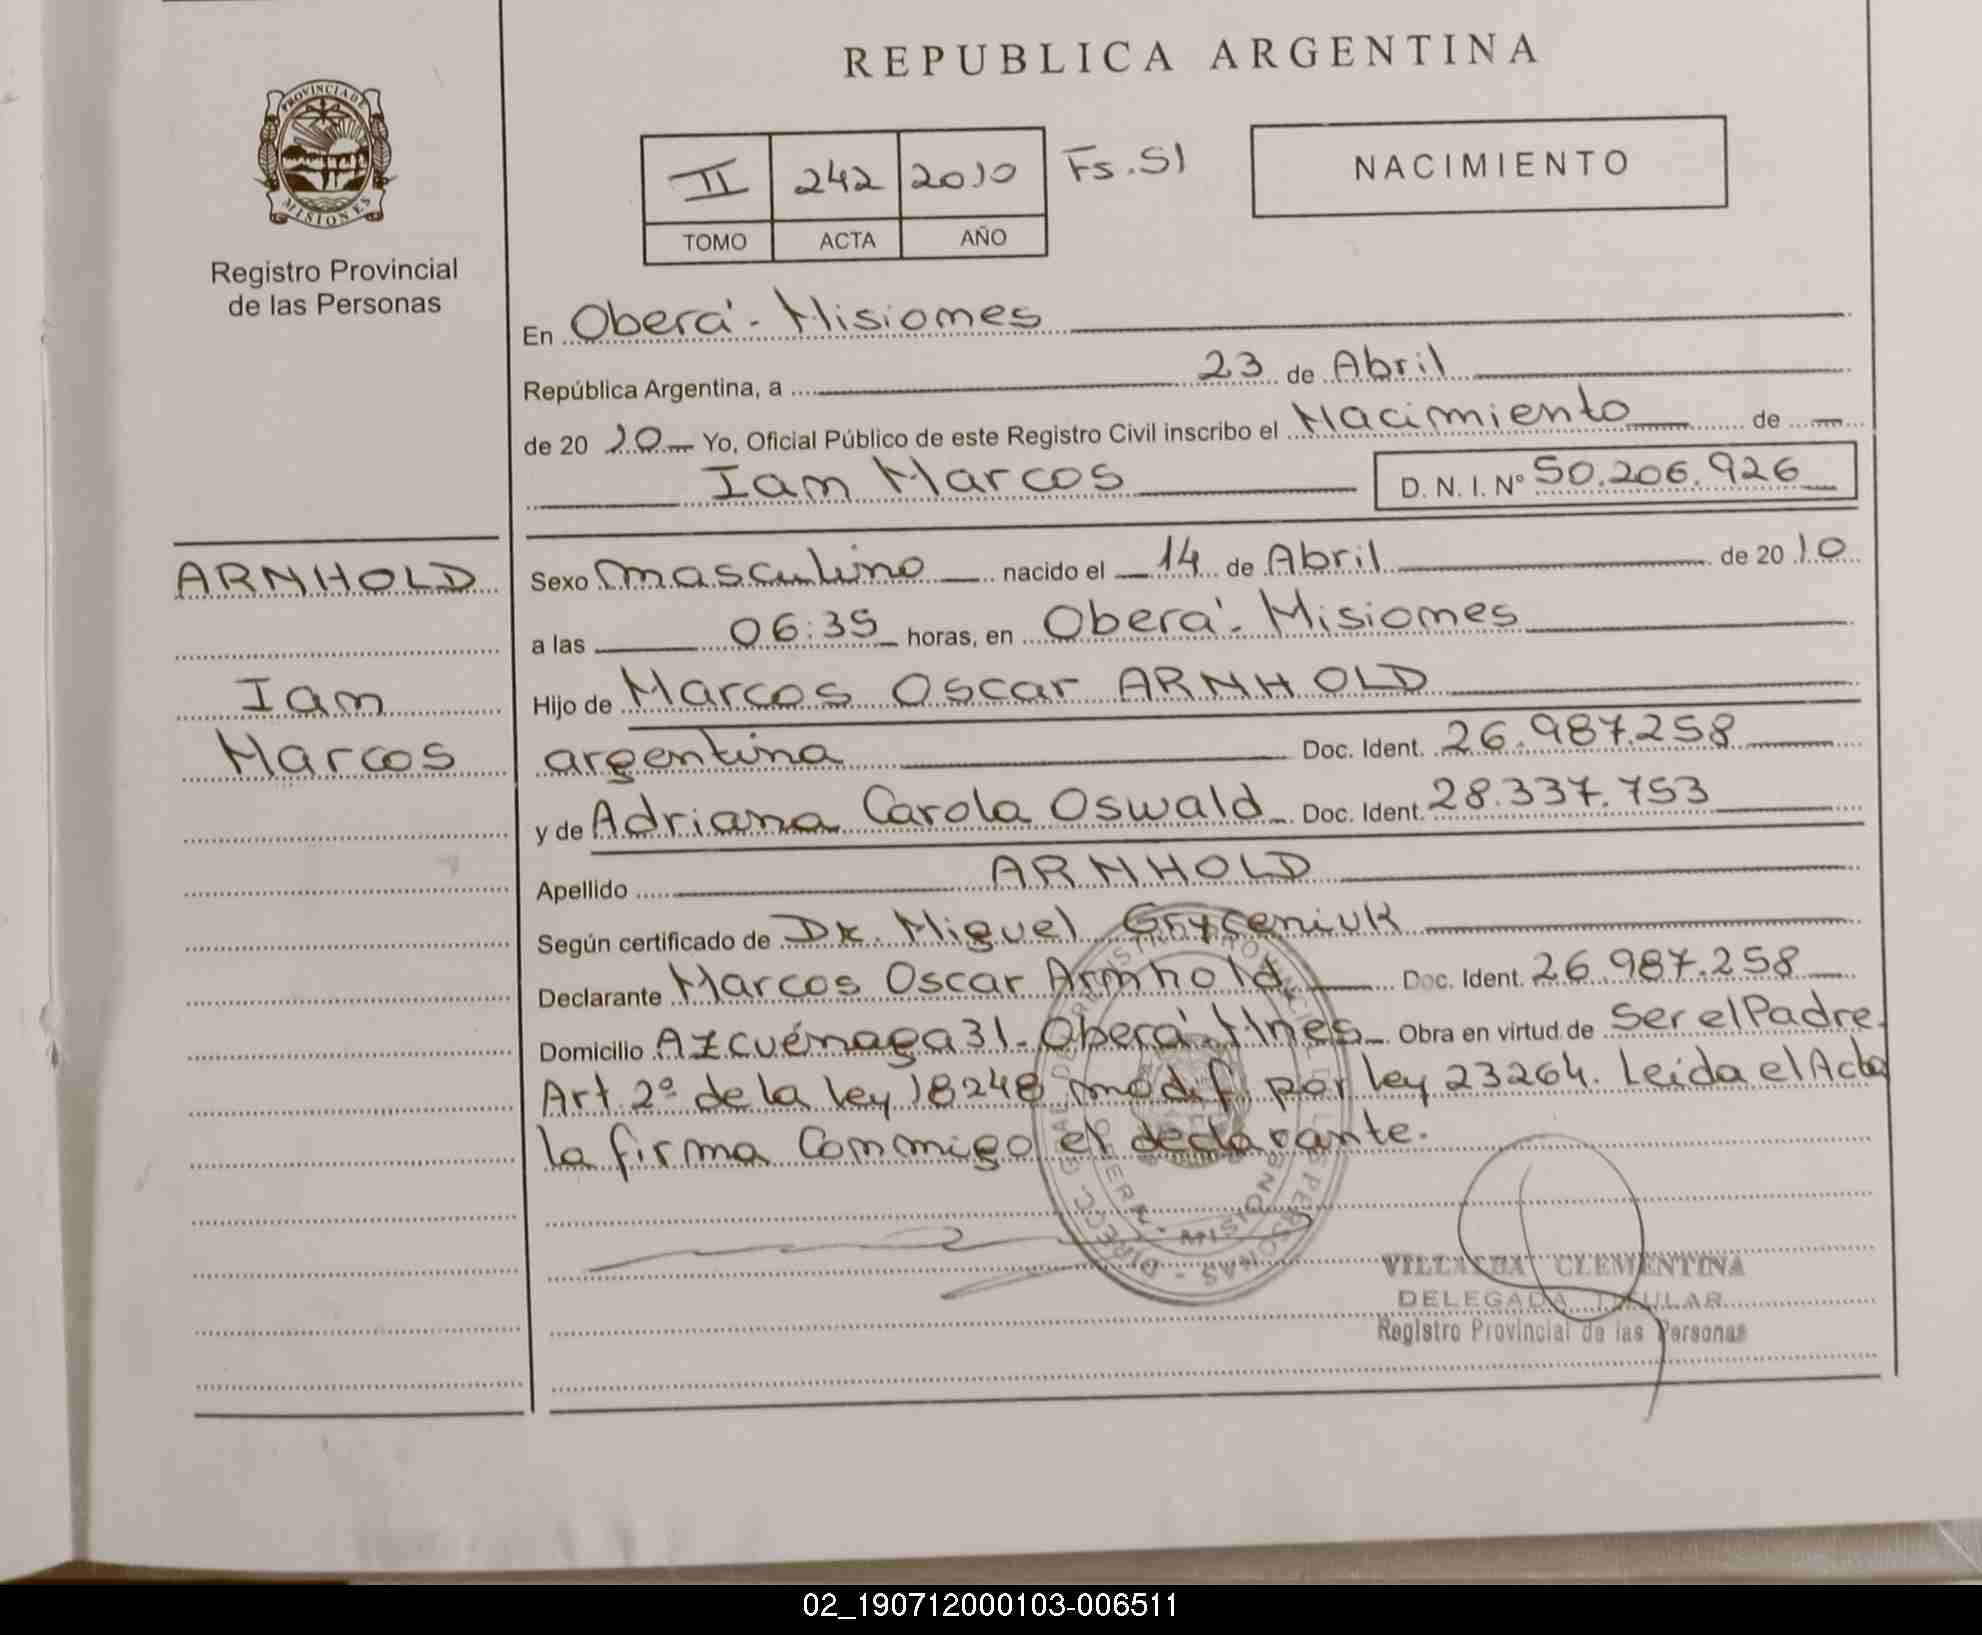 REPUBLICA ARGENTINA
PROVINCIA DE
MISIONES
Registro Provincial
de las Personas
II 242 2010 Fs. 51
TOMO ACTA AÑO
NACIMIENTO
En Oberá - Misiones
República Argentina, a 23 de Abril
de 20 10 Yo, Oficial Público de este Registro Civil inscribo el Nacimiento de
Ian Marcos D. N. I. Nº 50.206.926
ARNHOLD
Ian
Marcos
Sexo masculino nacido el 14 de Abril de 20 10
a las 06:35 horas, en Oberá - Misiones
Hijo de Marcos Oscar ARNHOLD
argentina Doc. Ident. 26.987.258
y de Adriana Carola Oswald Doc. Ident. 28.337.753
Apellido ARNHOLD
Según certificado de Dr. Miguel Gryceniuk
Declarante Marcos Oscar Arnhold Doc. Ident. 26.987.258
Domicilio Azcuénaga 31 - Oberá - Mnes Obra en virtud de Ser el Padre.
Art. 2º de la ley 18248 modif. por ley 23264. Leida el Acta
la firma Conmigo el declarante.
VILLALBA CLEMENTINA
DELEGADA TITULAR
Registro Provincial de las Personas
02_190712000103-006511